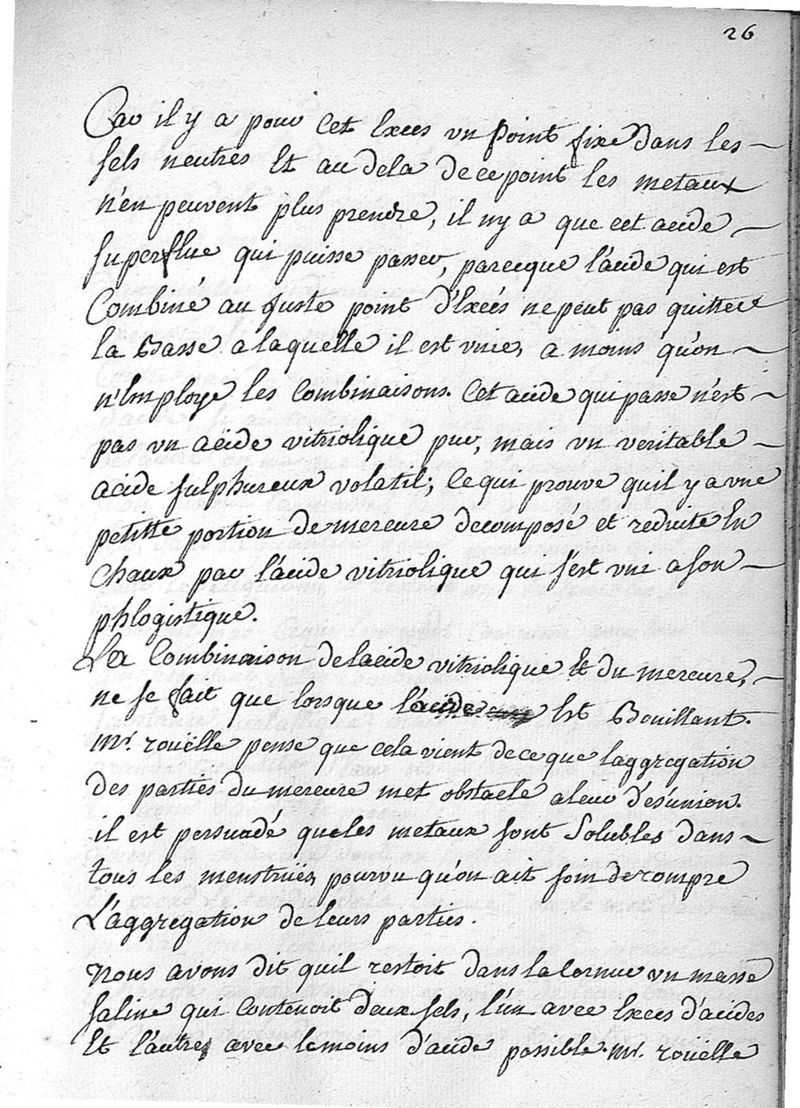 26
Car il y a pour cet Exces un point fixe dans les
sels neutres Et au dela de ce point les metaux
n'en peuvent plus prendre, il ny a que cet acide
superflue qui puisse passer, parceque l'acide qui est
Combiné au juste point d'Excés ne peut pas quitter
la Basse a laquelle il est unie, a moins qu'on
n'Employe les Combinaisons. Cet acide qui passe n'est
pas un acide vitriolique pur, mais un veritable
acide sulphureux volatil; Ce qui prouve quil y a une
petitte portion de mercure decomposé et reduite En
Chaux par l'acide vitriolique qui s'est uni a son
phlogistique.
La Combinaison de lacide vitriolique Et du mercure,
ne se fait que lorsque l'acide Est Bouillant.
Mr. rouëlle pense que cela vient de ce que l'aggregation
des parties du mercure met obstacle a leur des'union.
il est persuadé que les metaux sont Solubles dans
tous les menstrües, pourvu qu'on ait soin de rompre
L'aggregation de leurs parties.
Nous avons dit quil restoit dans la Cornue un masse
saline qui Contenoit deux sels, l'un avec Exces d'acides
Et l'autre, avec le moins d'acide possible. Mr. rouëlle